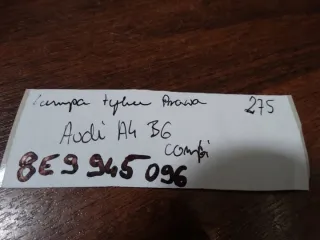 Lampa tylna Prawa 275
Audi A4 B6
combi
8E9 945 096